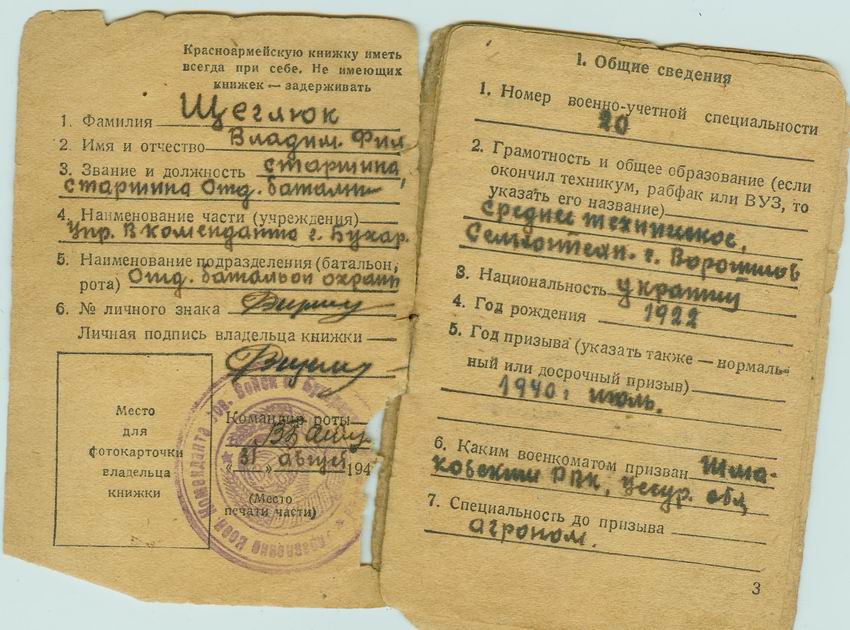 Красноармейскую книжку иметь
всегда при себе. Не имеющих
книжек — задерживать
1. Фамилия Щеглюк
2. Имя и отчество Владим. Фил
3. Звание и должность старшина,
старшина Отд. батальн
4. Наименование части (учреждения)
Упр. В коменданта г. Бухар.
5. Наименование подразделения (батальон,
рота) Отд. батальон охраны
6. № личного знака
Личная подпись владельца книжки
Место
для
фотокарточки
владельца
книжки
Командир роты
„31“ август 194
(Место
печати части)
1. Общие сведения
1. Номер военно-учетной специальности
20
2. Грамотность и общее образование (если
окончил техникум, рабфак или ВУЗ, то
указать его название)
Среднее техническое,
г. Ворошилов
3. Национальность украинец
4. Год рождения 1922
5. Год призыва (указать также — нормаль-
ный или досрочный призыв)
1940 г июль.
6. Каким военкоматом призван Шма-
ковским РВК, Уссур. обл
7. Специальность до призыва
агроном.
3